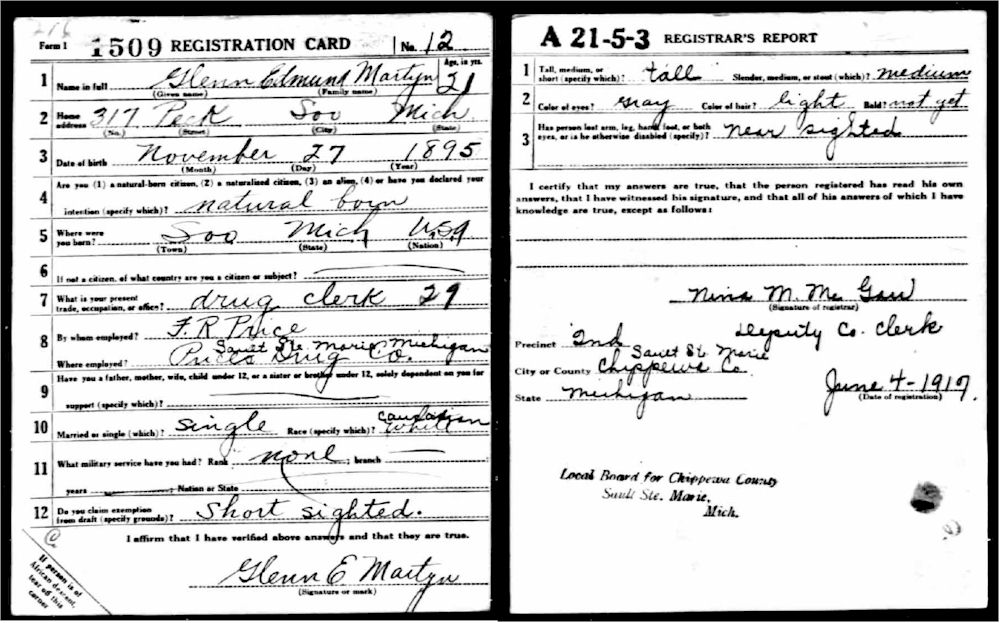 216
Form 1 1509 REGISTRATION CARD No. 12
1 Name in full Glenn Edmund Martyn Age, in yrs. 21
(Given name) (Family name)
2 Home address 317 Peck Soo Mich
(No.) (Street) (City) (State)
3 Date of birth November 27 1895
(Month) (Day) (Year)
4 Are you (1) a natural-born citizen, (2) a naturalized citizen, (3) an alien, (4) or have you declared your
intention (specify which)? natural born
5 Where were you born? Soo Mich USA
(Town) (State) (Nation)
6 If not a citizen, of what country are you a citizen or subject?
7 What is your present trade, occupation, or office? drug clerk 29
8 By whom employed? F. R Price
Sault Ste. Marie Michigan
Where employed? Prices Drug Co.
9 Have you a father, mother, wife, child under 12, or a sister or brother under 12, solely dependent on you for
support (specify which)?
Caucasian
10 Married or single (which)? single Race (specify which)? White
11 What military service have you had? Rank none ; branch
years ; Nation or State
12 Do you claim exemption from draft (specify grounds)? Short sighted.
I affirm that I have verified above answers and that they are true.
Glenn E Martyn
(Signature or mark)
If person is of
African descent,
tear off this
corner
A 21-5-3 REGISTRAR'S REPORT
1 Tall, medium, or short (specify which)? tall Slender, medium, or stout (which)? medium
2 Color of eyes? gray Color of hair? light Bald? not yet
3 Has person lost arm, leg, hand, foot, or both eyes, or is he otherwise disabled (specify)? near sighted
I certify that my answers are true, that the person registered has read his own
answers, that I have witnessed his signature, and that all of his answers of which I have
knowledge are true, except as follows:
Nina M. Mc Gaw
(Signature of registrar)
Deputy Co. Clerk
Precinct 2nd
Sault St. Marie
City or County Chippewa Co.
State Michigan June 4-1917.
(Date of registration)
Local Board for Chippewa County
Sault Ste. Marie,
Mich.